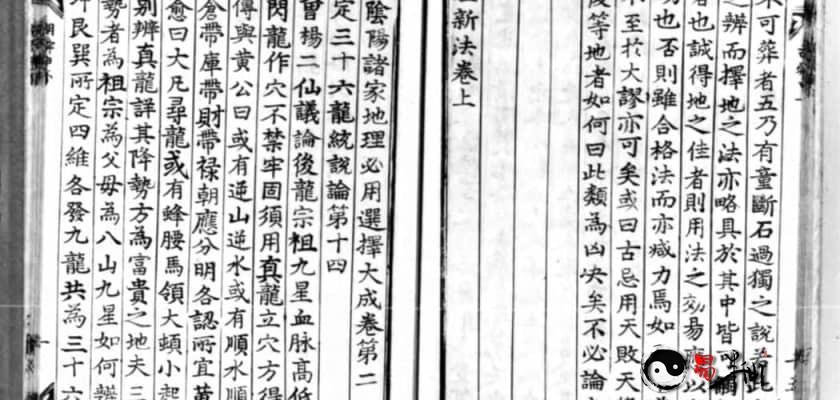 不可葬者五乃有童斷石過獨之說若此
之辨而擇地之法亦略具於其中皆可
者也誠得地之佳者則用法之效易應以
功也否則雖合格法而亦減力焉如
不至於大謬亦可矣或曰古忌用天敗天
後等地者如何曰此類為凶决矣不必論
新法卷上
陰陽諸家地理必用選擇大成卷第二
定三十六龍統說論第十四
曾楊二仙議論後龍宗祖九星血脉高低
閃龍作穴不禁牢固須用真龍立穴方得
傳與黄公曰或有逆山逆水或有順水順
倉帶庫帶財帶祿朝應分明各認所宜黄
愈曰大凡尋龍或有蜂腰馬領大頓小起
別辨真龍詳其降勢方為富貴之地夫三
勢者為祖宗為父母為八山九星如何辨
坤艮巽所定四維各發九龍共為三十六